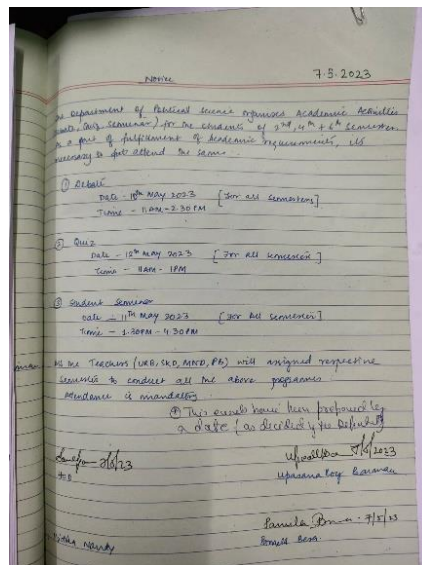 Notice 7.5.2023
Department of Political Science organised Academic Activities
Quiz, Seminar) for the students of 2nd, 4th + 6th Semester
as a part of fulfilment of Academic requirements, its
necessary to attend the same.
① Debate
Date - 10th May 2023 [For all semesters]
Time - 11AM - 2.30 PM
② Quiz
Date - 12th May 2023 [For all semester]
Time - 11AM - 1PM
③ Student Seminar
Date - 11TH May 2023 [For All semester]
Time - 1.30PM - 4.30PM
All the Teachers (URB, SKD, MND, PB) will assigned respective
semester to conduct all the above programmes
Attendance is mandatory
This events have been
a date (as decided by the
Upasana Roy Barman
Nandy